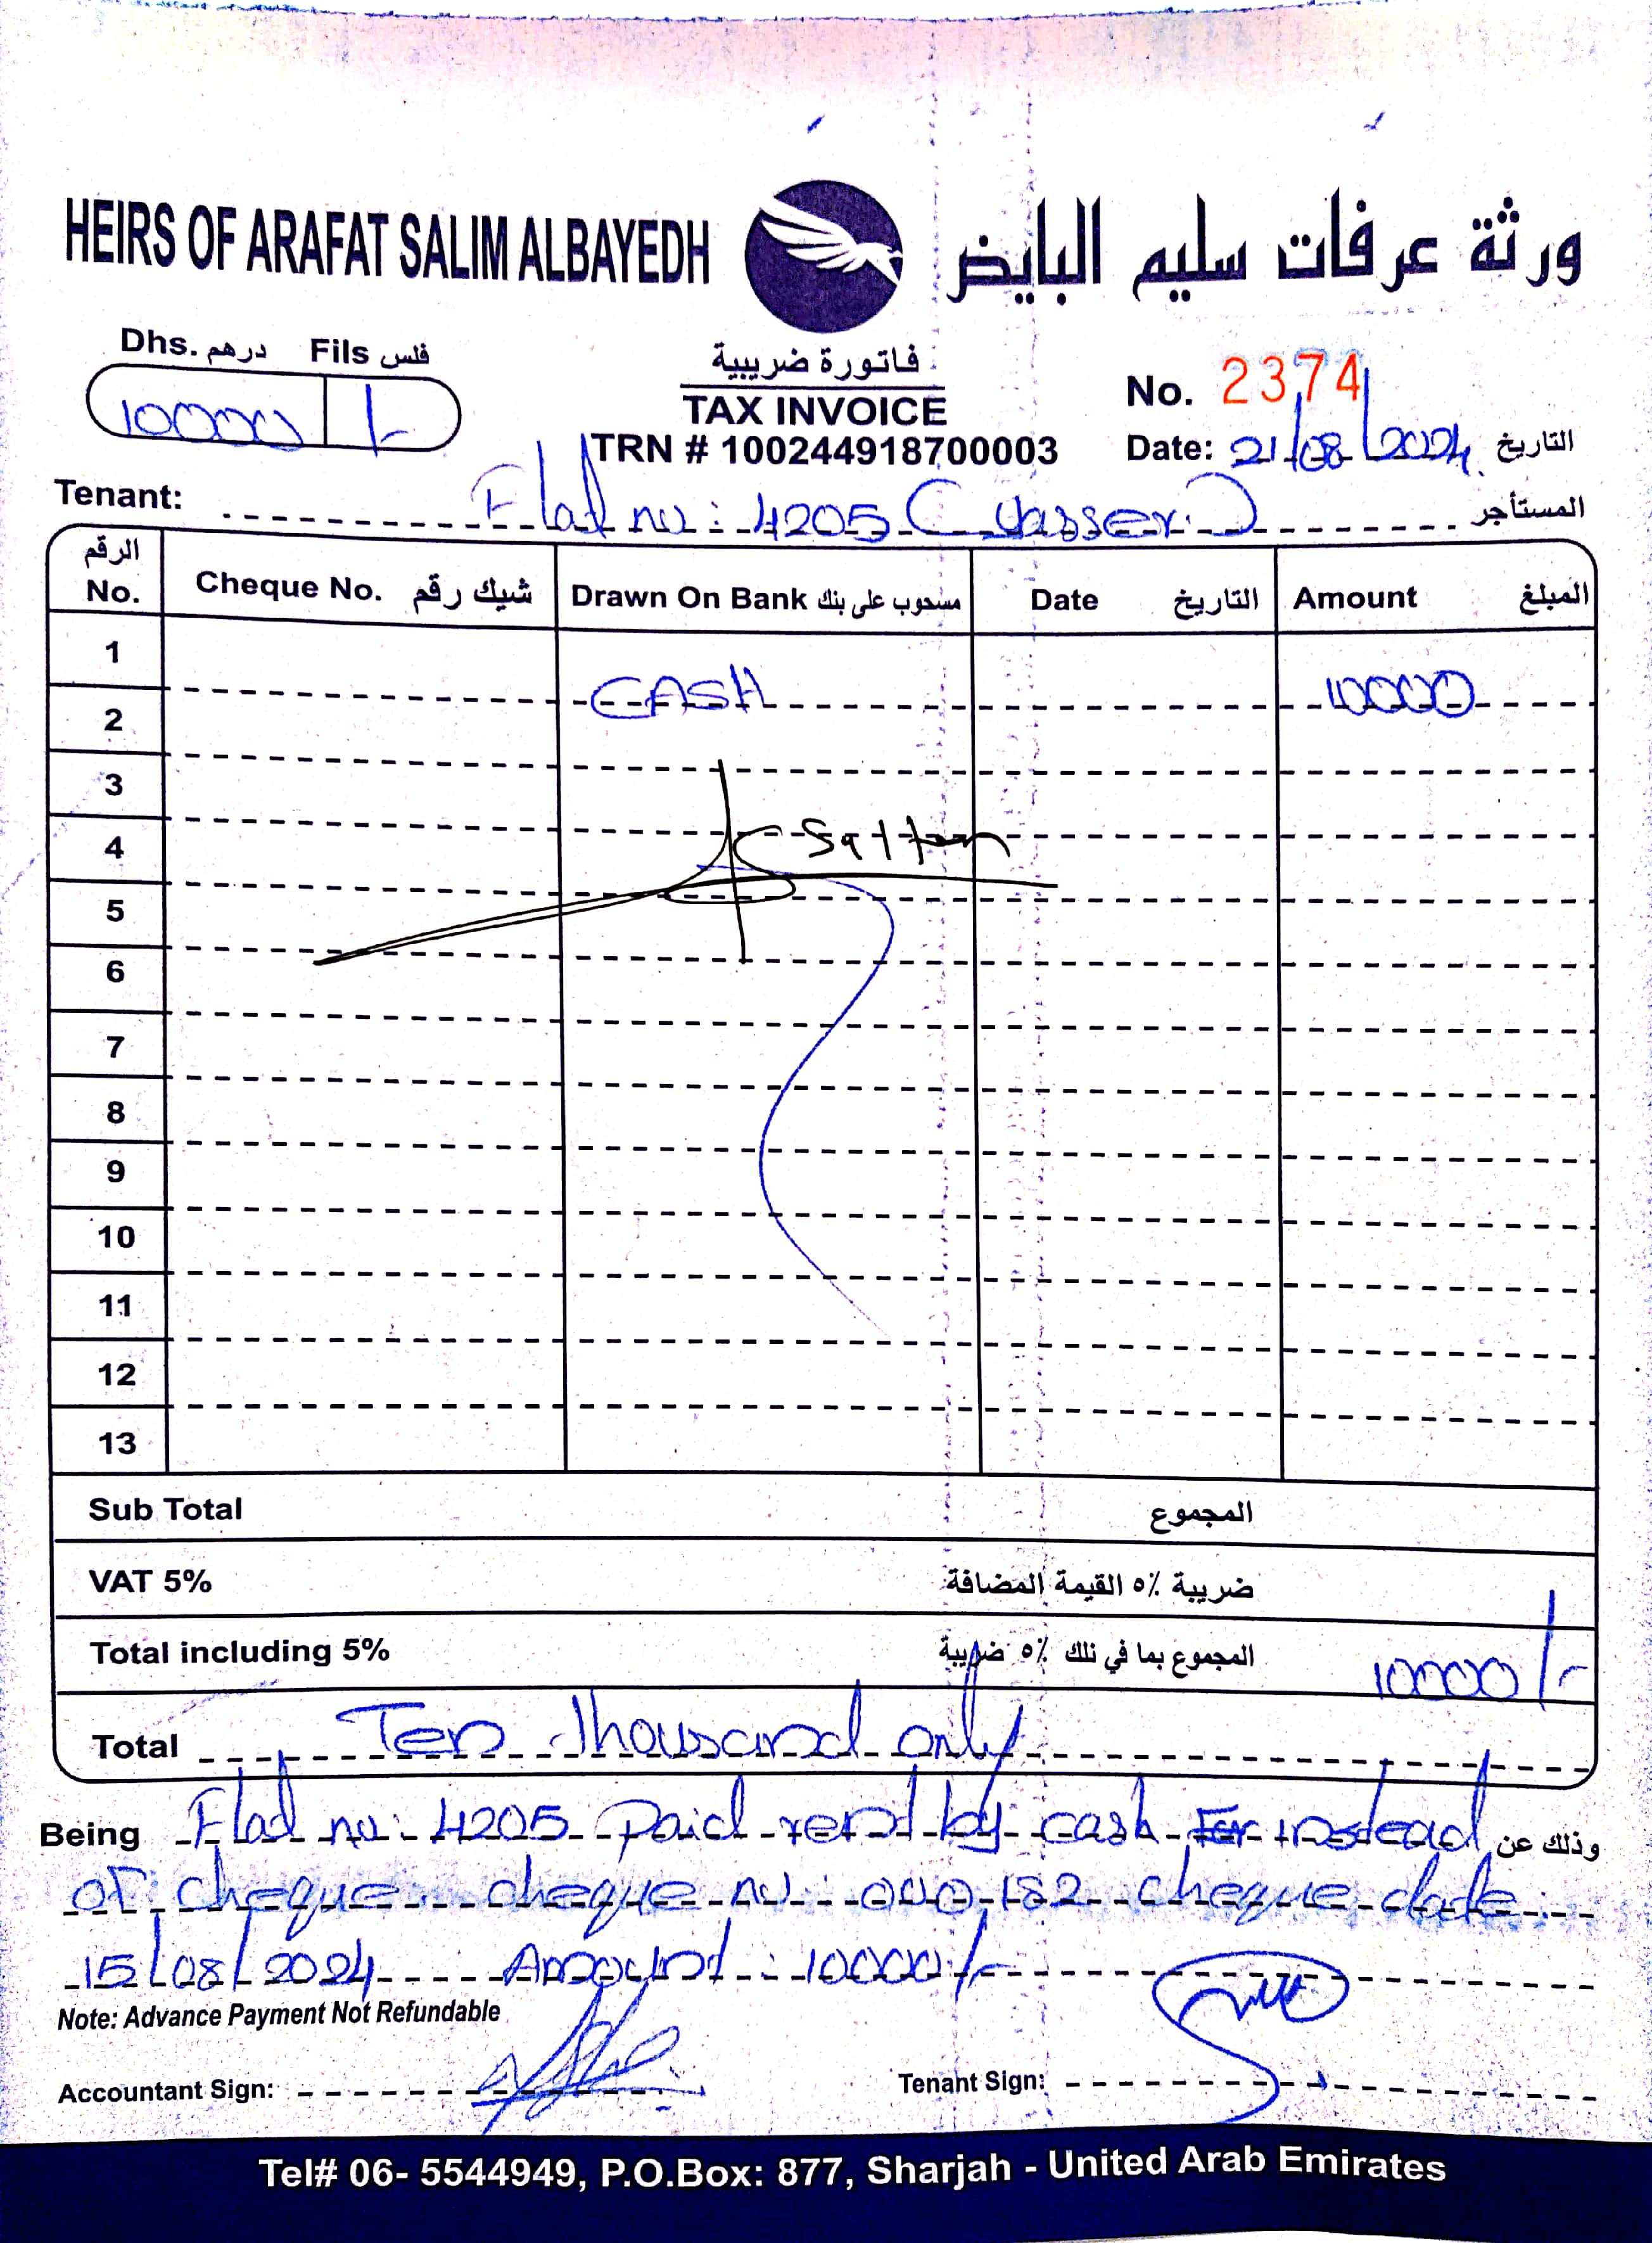 HEIRS OF ARAFAT SALIM ALBAYEDH ورثة عرفات سليم البايض
Dhs. درهم Fils فلس
10000 /-
فاتورة ضريبية
TAX INVOICE
TRN # 100244918700003
No. 2374
Date: 21/08/2024 التاريخ
Tenant: Flat no: 4205 (Yasser) المستأجر
الرقم No. Cheque No. شيك رقم Drawn On Bank مسحوب على بنك Date التاريخ Amount المبلغ
1
CASH 10000
2
3
4
5
6
7
8
9
10
11
12
13
Sub Total المجموع
VAT 5% ضريبة ٥٪ القيمة المضافة
Total including 5% المجموع بما في ذلك ٥٪ ضريبة 10000/-
Total Ten thousand only
Being Flat no: 4205 Paid rent by cash For instead وذلك عن
of cheque cheque no: 000182 cheque date:
15/08/2024 Amount: 10000/-
Note: Advance Payment Not Refundable
Accountant Sign: Tenant Sign:
Tel# 06- 5544949, P.O.Box: 877, Sharjah - United Arab Emirates